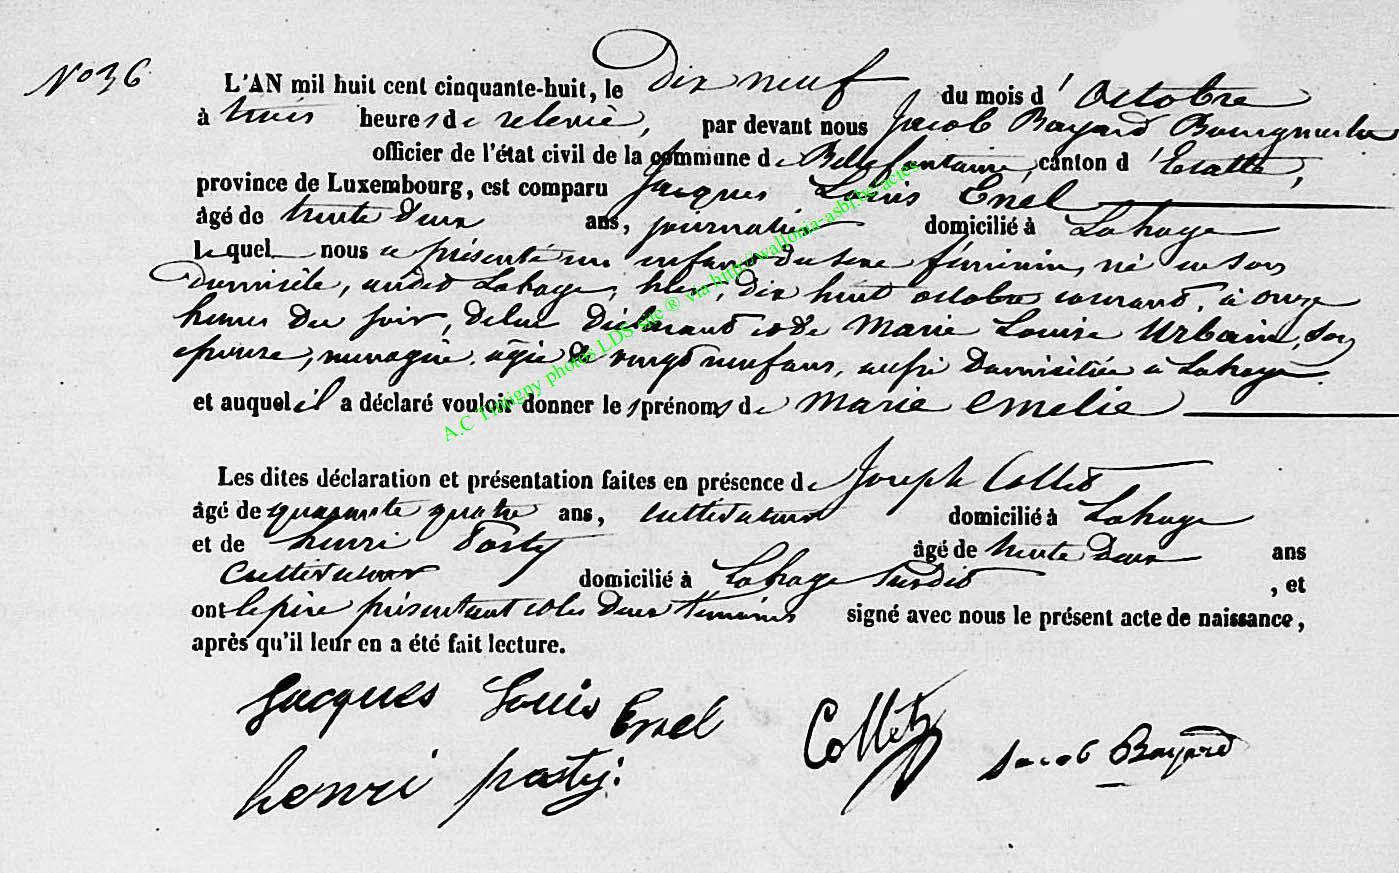 No 36
L'AN mil huit cent cinquante-huit, le Dix neuf du mois d'Octobre
à trois heures de relevée, par devant nous Jacob Bayard Bourgmestre
officier de l'état civil de la commune de Bellefontaine, canton d'Etalle,
province de Luxembourg, est comparu Jacques Louis Enel
âgé de trente deux ans, journalier domicilié à Lahage
lequel nous a présenté un enfant du sexe féminin, né en son
Domicile, audit Lahage, hier, dix huit octobre courant, à onze
heures du soir, de lui Déclarant et de Marie Louise Urbain, son
épouse, ménagère, âgée de vingt neuf ans, aussi Domiciliée à Lahage.
et auquel il a déclaré vouloir donner les prénoms de Marie Emelie
Les dites déclaration et présentation faites en présence de Joseph Collet
âgé de quarante quatre ans, cultivateur domicilié à Lahage
et de henri Pasty âgé de trente deux ans
Cultivateur domicilié à Lahage susdit, et
ont le père présentant et les deux témoins signé avec nous le présent acte de naissance,
après qu'il leur en a été fait lecture.
Jacques Louis Enel
Collet
Jacob Bayard
henri pasty
A.C Tintigny photos LDS site ® via http://wallonia-asbl.be/actes